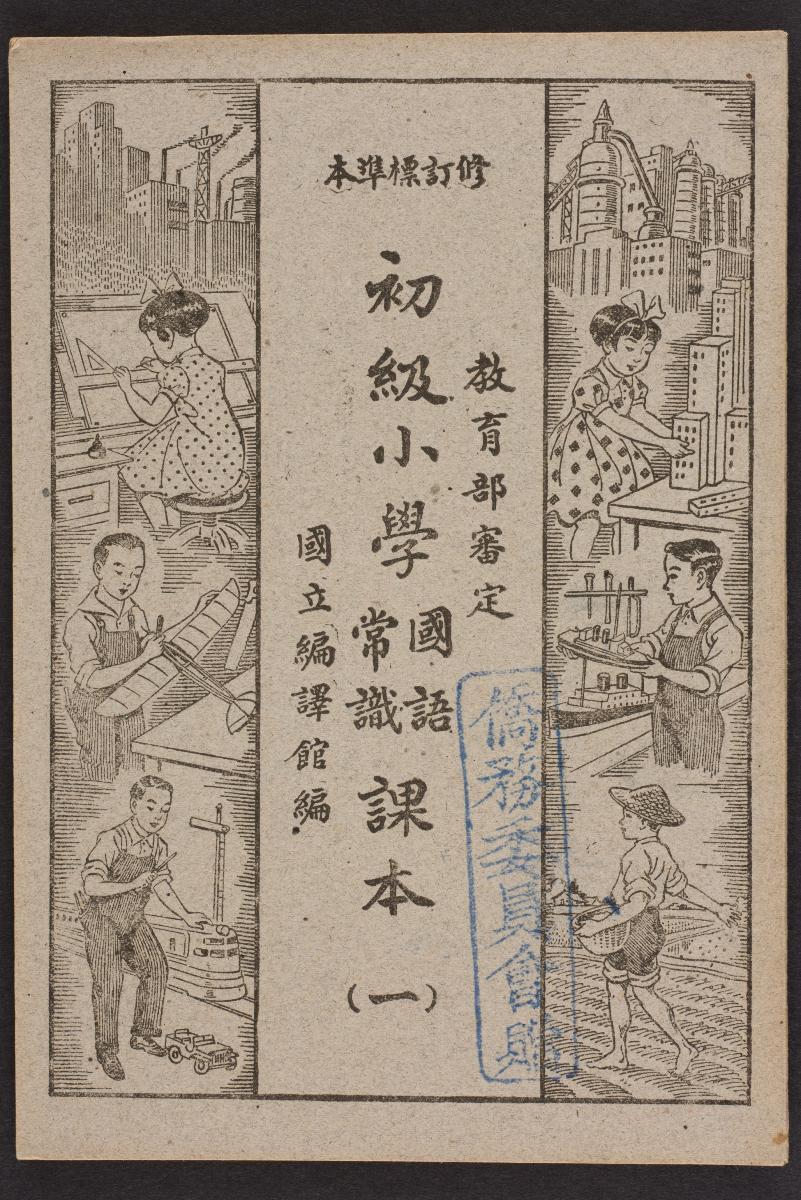 修訂標準本
教育部審定
初級小學國語常識課本（一）
國立編譯館編
僑務委員會贈